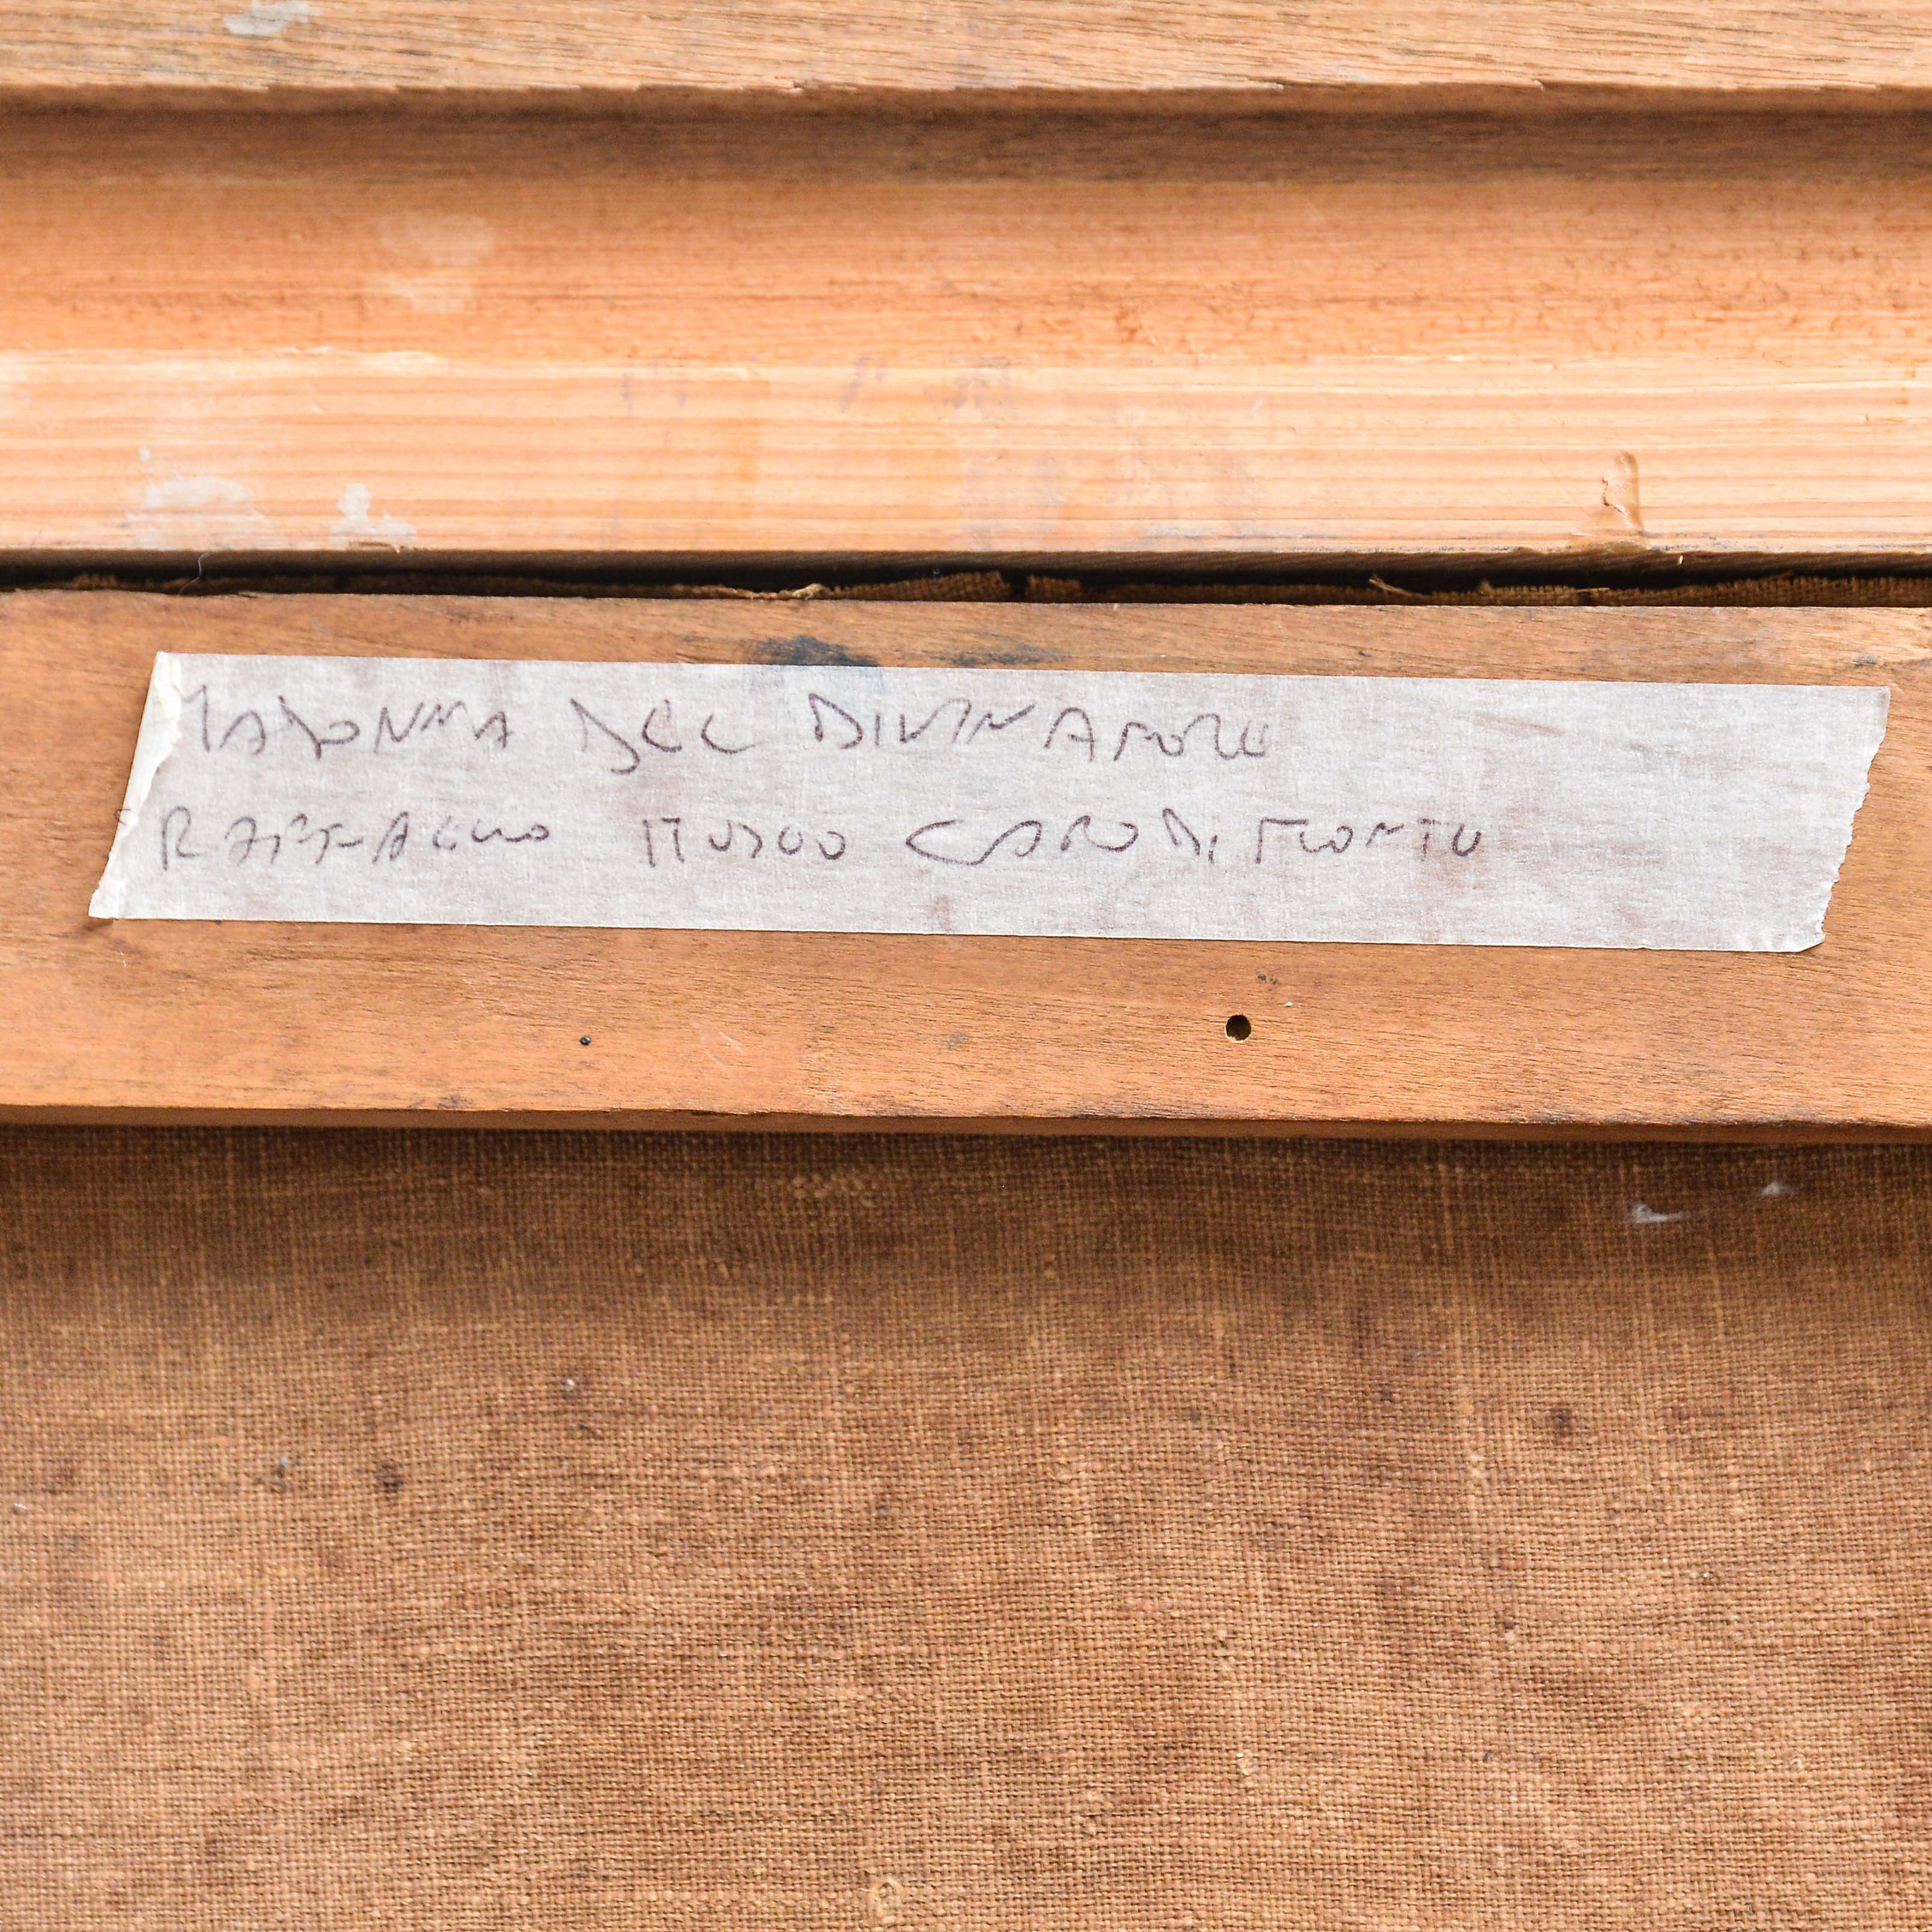 MADONNA DEL DIVIN AMORE
RAFFAELLO MUSEO CAPO DI MONTE